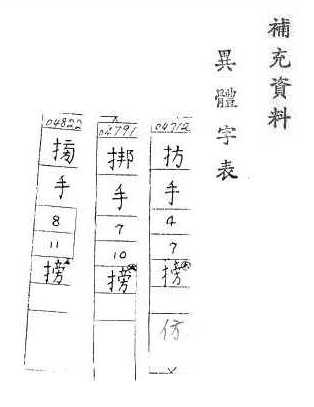 補充資料
異體字表
04712
㧍
手
4
7
搒
仿
04791
挷
手
7
10
搒
04822
手
8
11
搒